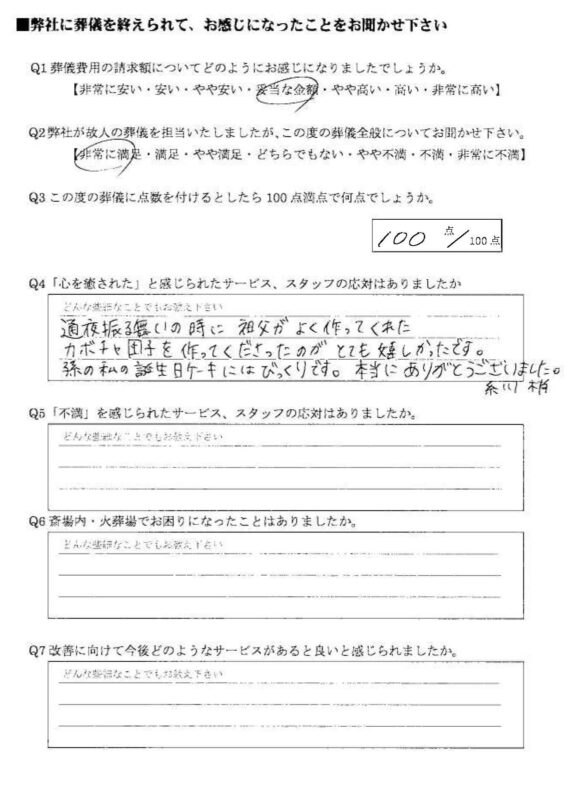 ■弊社に葬儀を終えられて、お感じになったことをお聞かせ下さい
Q1 葬儀費用の請求額についてどのようにお感じになりましたでしょうか。
【非常に安い・安い・やや安い・妥当な金額・やや高い・高い・非常に高い】
Q2 弊社が故人の葬儀を担当いたしましたが、この度の葬儀全般についてお聞かせ下さい。
【非常に満足・満足・やや満足・どちらでもない・やや不満・不満・非常に不満】
Q3 この度の葬儀に点数を付けるとしたら 100 点満点で何点でしょうか。
100 点/100 点
Q4 「心を癒された」と感じられたサービス、スタッフの応対はありましたか
どんな些細なことでもお教え下さい
通夜振る舞いの時に 祖父が よく作ってくれた
カボチャ団子を作ってくださったのが とても嬉しかったです。
孫の私の誕生日ケーキにはびっくりです。本当に ありがとうございました。
Q5 「不満」を感じられたサービス、スタッフの応対はありましたか。
どんな些細なことでもお教え下さい
Q6 斎場内・火葬場でお困りになったことはありましたか。
どんな些細なことでもお教え下さい
Q7 改善に向けて今後どのようなサービスがあると良いと感じられましたか。
どんな些細なことでもお教え下さい